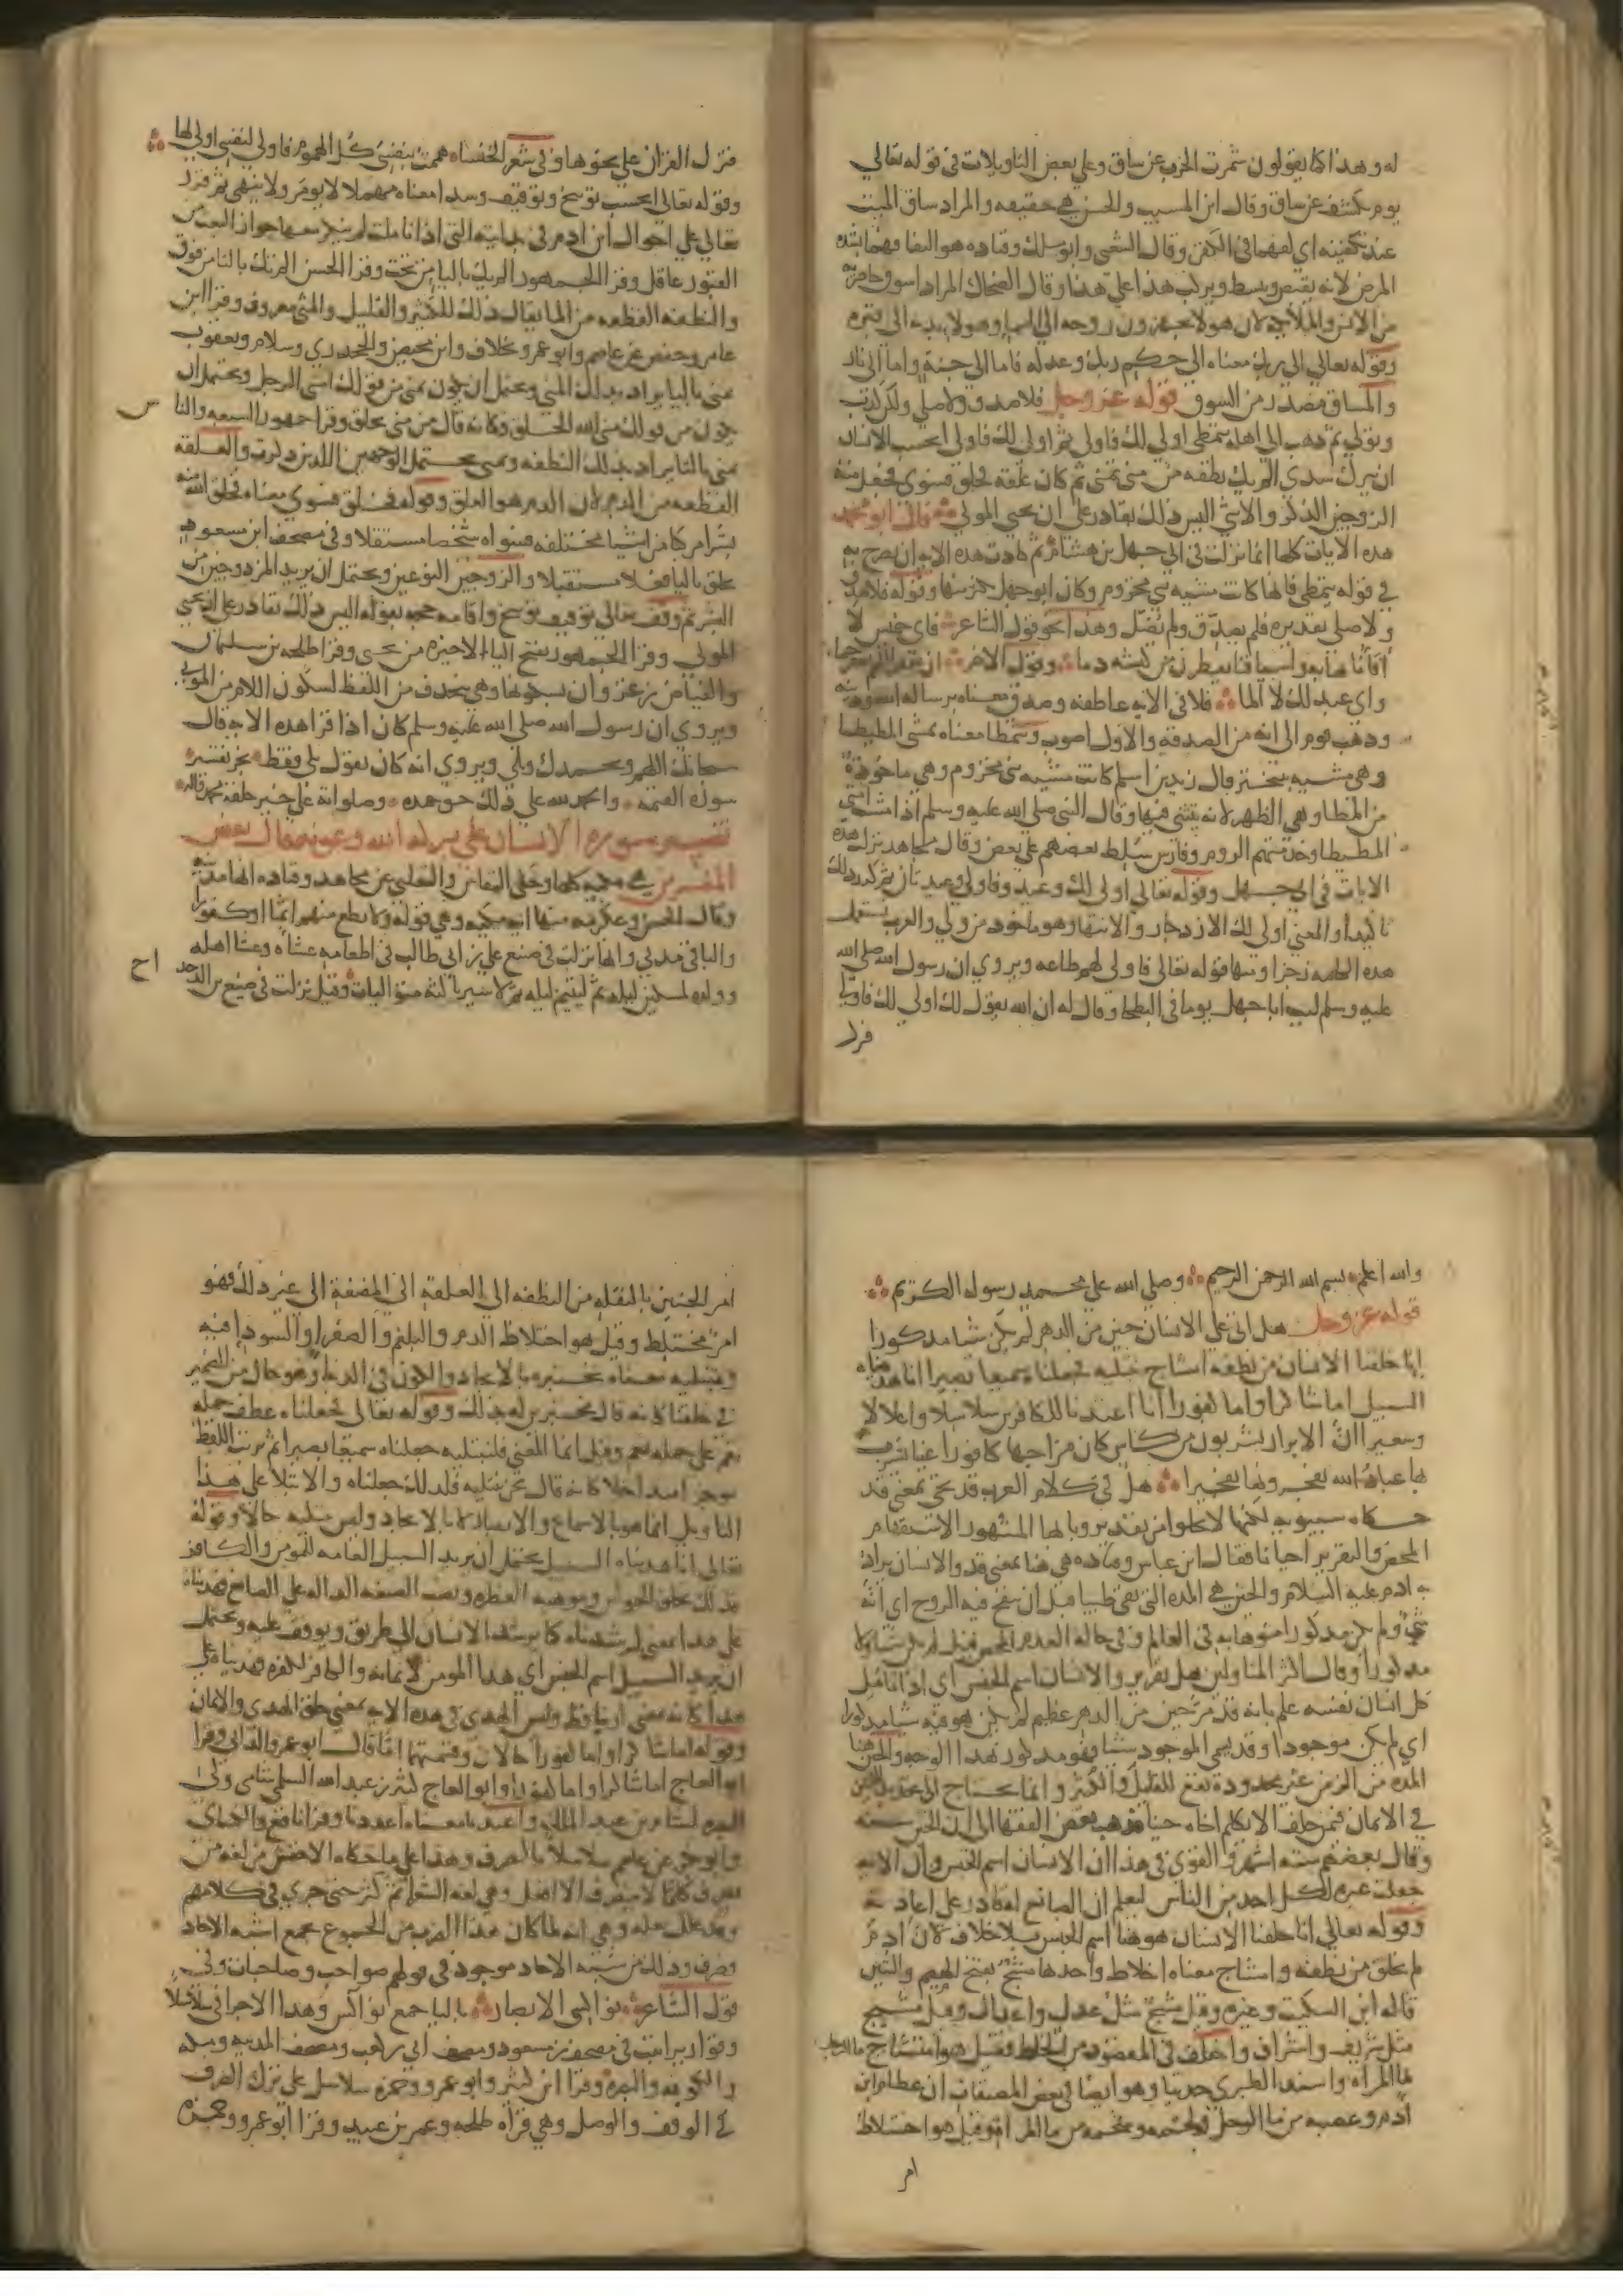 له وهذا كما يقولون شمرت الحرب عن ساق وعلى بعض التاويلات في قوله تعالى
يوم يكشف عن ساق وقال ابن المسيب والحسن هي حقيقه والمراد ساق الميت
عند تكفينه اي لفهما في الكفن وقال الشعبي وابو مالك وقتاده هو التفافهما بشده
المرض لانه يقبض ويبسط ويركب هذا على هذا وقال الضحاك المراد اسوق حاضريه
من الانس والملائكه لان هولا يجهزون روحه الى السما وهولا بدنه الى قبره
وقوله تعالى الى ربك معناه الى حكم ربك وعدله فاما الى جنة واما الى نار
والمساق مصدر من السوق قوله عز وجل فلا صدق ولا صلى ولكن كذب
وتولى ثم ذهب الى اهله يتمطى اولى لك فاولى ثم اولى لك فاولى ايحسب الانسان
ان يترك سدى الم يك نطفه من منى تمنى ثم كان علقة فخلق فسوى فجعل منه
الزوجين الذكر والانثى اليس ذلك بقادر على ان يحيي الموتى قال ابو محمد
هذه الايات كلها انما نزلت في ابي جهل بن هشام ثم كادت هذه الايه ان تصرح به
في قوله يتمطى فانها كانت مشيه بني مخزوم وكان ابو جهل يكثر منها وقوله فلا صدق
ولا صلى تقديره فلم يصدق ولم يصل وهذا نحو قول الشاعر فاي خميس لا
افانا نهابه واسيافنا يقطرن من كبشه دما وقول الاخر ان تغفر اللهم تغفر جما
واي عبد لك لا الما فلا في الايه عاطفه وصدق معناه برسالة الله ودينه
وذهب قوم الى انه من الصدقه والاول اصوب ويتمطى معناه يمشي المطيطا
وهي مشيه بتبختر قال زيد بن اسلم كانت مشيه بني مخزوم وهي ماخوذة
من المطا وهو الظهر لانه يتثنى فيها وقال النبي صلى الله عليه وسلم اذا مشت امتي
المطيطا وخدمتهم الروم وفارس سلط بعضهم على بعض وقال مجاهد نزلت هذه
الايات في ابي جهل وقوله تعالى اولى لك وعيد وفاولى وعيد ثان ثم كرر ذلك
تاكيدا والمعنى اولى لك الازدجار والانتها وهو ماخوذ من ولي والعرب تستعمل
هذه الكلمه زجرا ومنها قوله تعالى فاولى لهم طاعه ويروى ان رسول الله صلى الله
عليه وسلم لبب ابا جهل يوما في البطحا وقال له ان الله يقول لك اولى لك فاولى
فنزل
فنزل القران على نحوها وفي شعر الخنساء هممت بنفسي كل الهموم فاولى لنفسي اولى لها
وقوله تعالى ايحسب توبيخ وتوقيف وسدى معناه مهملا لا يومر ولا ينهى ثم قرر
تعالى على احوال ابن ادم في بدايته التي اذا تاملت لم ينكر معها جواز البعث من
القبور عاقل وقرا الجمهور الم يك باليا من تحت وقرا الحسن الم تك بالتا من فوق
والنطفه القطعه من الما يقال ذلك للكثير والقليل والمنى معروف وقرا ابن
عامر وحفص عن عاصم وابو عمرو بخلاف وابن محيصن والجحدري وسلام ويعقوب
يمنى باليا يراد بذلك المنى ويحتمل ان يكون يمنى من قولك امنى الرجل ويحتمل ان
يكون من قولك منى الله الخلق وكانه قال من منى يخلق وقرا جمهور السبعه والناس
تمنى بالتا يراد بذلك النطفه وتمنى يحتمل الوجهين اللذين ذكرت والعلقه
القطعه من الدم لان الدم هو العلق وقوله فخلق فسوى معناه فخلق الله منه
بشرا مركبا من اشيا مختلفه فسواه شخصا مستقلا وفي مصحف ابن مسعود
يخلق باليا فعلا مستقبلا والزوجين النوعين ويحتمل ان يريد المزدوجين من
البشر ثم وقف تعالى توقيف توبيخ واقامه حجه بقوله اليس ذلك بقادر على ان يحيي
الموتى وقرا الجمهور بفتح اليا الاخيره من يحيى وقرا طلحه بن سليمان
والفياض بن غزوان بسكونها وهي تنحذف من اللفظ لسكون اللام من الموتى
ويروى ان رسول الله صلى الله عليه وسلم كان اذا قرا هذه الايه قال
سبحانك اللهم وبحمدك وبلى ويروى انه كان يقول بلى فقط نجز تفسير
سوره القيمه والحمد لله على ذلك حق حمده وصلواته على خير خلقه محمد واله
تفسير سورة الانسان على بركه الله وعونه قال بعض
المفسرين هي مكيه كلها وحكى النقاش والثعلبي عن مجاهد وقتاده انها مدنيه
وقال الحسن وعكرمه منها ايه مكيه وهي قوله ولا تطع منهم اثما او كفورا
والباقي مدني وانها نزلت في صنيع علي بن ابي طالب في اطعامه عشاه وعشا اهله
وولده لمسكين ليله ثم ليتيم ليله ثم لاسير ثالثه متواليات وقيل نزلت في صنيع بن الدحداح
والله اعلم بسم الله الرحمن الرحيم وصلى الله على محمد رسوله الكريم
قوله عز وجل هل اتى على الانسان حين من الدهر لم يكن شيا مذكورا
انا خلقنا الانسان من نطفه امشاج نبتليه فجعلناه سميعا بصيرا انا هديناه
السبيل اما شاكرا واما كفورا انا اعتدنا للكافرين سلاسلا واغلالا
وسعيرا ان الابرار يشربون من كاس كان مزاجها كافورا عينا يشرب
بها عباد الله يفجرونها تفجيرا هل في كلام العرب قد تجي بمعنى قد
حكاه سيبويه لكنها لا تخلوا من تقدير وبابها المشهور الاستفهام
المحض والتقرير احيانا فقال ابن عباس وقتاده هي هنا بمعنى قد والانسان يراد
به ادم عليه السلام والحين هي المده التي بقي طينا قبل ان ينفخ فيه الروح اي انه
شي ولم يكن مذكورا منوها به في العالم وفي حاله العدم المحض قبل لم يكن شيا ولا
مذكورا وقال اكثر المتاولين هل تقرير والانسان اسم الجنس اي اذا تامل
كل انسان نفسه علم بانه قد مر حين من الدهر عظيم لم يكن هو فيه شيا مذكورا
اي لم يكن موجودا وقد يسمى الموجود شيا فهو مذكور بهذا الوجه والحين هنا
المده من الزمن غير محدودة تقع للقليل والكثير وانما يحتاج الى تحديد الحين
في الايمان فمن حلف الا يكلم اخاه حينا فذهب بعض الفقها الى ان الحين سنه
وقال بعضهم سته اشهر والقوي في هذا ان الانسان اسم الجنس وان الايه
جعلت عبره لكل احد من الناس ليعلم ان الصانع له قادر على اعادته
وقوله تعالى انا خلقنا الانسان هو هنا اسم الجنس بلا خلاف لان ادم
لم يخلق من نطفه وامشاج معناه اخلاط واحدها مشج بفتح الجيم والشين
قاله ابن السكيت وغيره وقيل مشج مثل عدل واعدال وقيل مشيج
مثل شريف واشراف واختلف في المقصود من الخلط فقيل هو امشاج ما الرجل
بما المراه واسند الطبري حديثا وهو ايضا في بعض المصنفات ان عظام ابن
ادم وعصبه من ما الرجل ولحمه وشحمه من ما المراة وقيل هو اختلاط
امر
امر الجنين بالنقله من النطفه الى العلقة الى المضغة الى غير ذلك فهو
امر مختلط وقيل هو اختلاط الدم والبلغم والصفرا والسودا فيه
ونبتليه معناه نختبره بالايجاد والكون في الدنيا وهو حال من الضمير
في خلقنا كانه قال مختبرين له بذلك وقوله تعالى فجعلناه عطف جمله
نعم على جمله نعم وقيل انما المعنى فلنبتليه جعلناه سميعا بصيرا ثم ترتب اللفظ
موجزا متداخلا كانه قال نحن نبتليه فلذلك جعلناه والابتلا على هذا
التاويل انما هو بالاسماع والابصار لا بالايجاد وليس نبتليه حالا وقوله
تعالى انا هديناه السبيل يحتمل ان يريد السبيل العامه للمومن والكافر
فذلك بخلق الحواس وموهبه الفطره ونصب الصنعه الداله على الصانع فهديناه
على هذا بمعنى ارشدناه كما يرشد الانسان الى طريق ويوقف عليه ويحتمل
ان يريد السبيل اسم الجنس اي هدى المومن لايمانه والكافر لكفره فهديناه على
هذا كانه بمعنى اريناه فقط وليس الهدى في هذه الايه بمعنى خلق الهدى والايمان
وقوله اما شاكرا واما كفورا حالان وقسمتهما اما قال ابو عمرو الداني وقرا
ابو العاج اما شاكرا واما كفورا وابو العاج كثير بن عبد الله السلمي شامي ولي
البصره لهشام بن عبد الملك واعتدنا معناه اعددنا وقرا نافع والكساي
وابو بكر عن عاصم سلاسلا بالصرف وهذا على ما حكاه الاخفش من لغه من
يصرف كلما لا ينصرف الا افعل وهي لغه الشعرا ثم كثر حتى جرى في كلامهم
وقد علل بعله وهي انه لما كان هذا الضرب من الجموع يجمع اشبه الاحاد
فصرف وذلك من شبه الاحاد موجود في قولهم صواحب وصاحبات وفي
قول الشاعر نواكسي الابصار باليا جمع نواكس وهذا الاجرا في سلاسلا
وقواريرا ثبت في مصحف بن مسعود ومصحف ابي بن كعب ومصحف المدينه ومكه
والكوفه والبصره وقرا ابن كثير وابو عمرو وحمزه سلاسل على ترك الصرف
في الوقف والوصل وهي قراه طلحه وعمرو بن عبيد وقرا ابو عمرو وحمزه